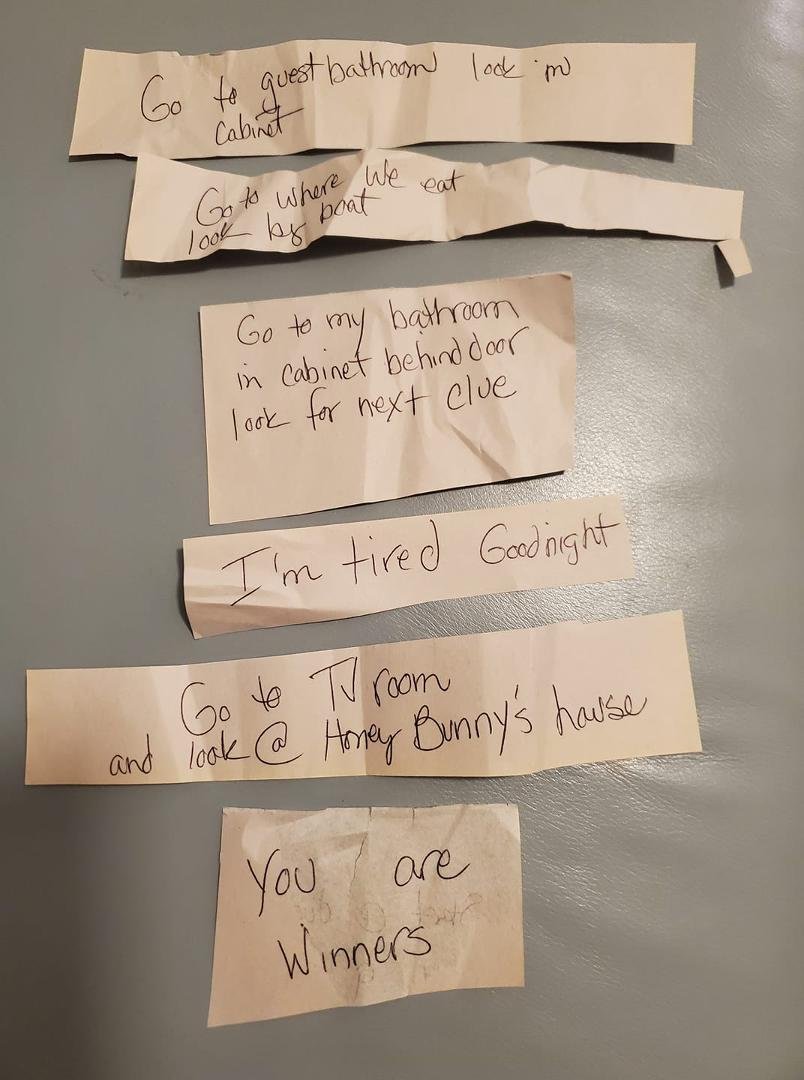 Go to guest bathroom look in
cabinet
Go to where we eat
look by boat
Go to my bathroom
in cabinet behind door
look for next clue
I'm tired Goodnight
Go to TV room
and look @ Honey Bunny's house
You are
Winners